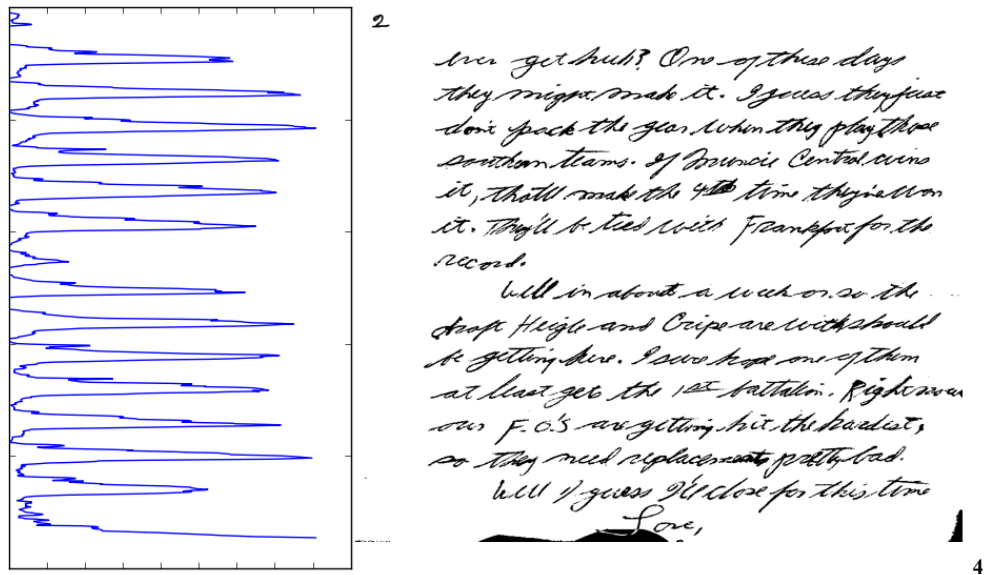 2
ever get huh? One of these days
they might make it. I guess they just
don't pack the gear when they play those
southern teams. If Muncie Central wins
it, that'll make the 4th time they've won
it. They'll be tied with Frankfort for the
record.
Well in about a week or so the
draft Heigle and Cripe are with should
be getting here. I sure hope one of them
at least gets the 1st battalion. Right now
our F.O.'S are getting hit the hardest,
so they need replacements pretty bad.
Well I guess I'll close for this time
Love,
4